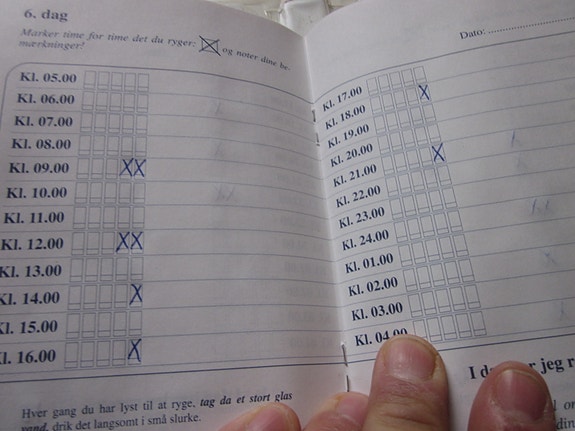 6. dag
Marker time for time det du ryger: og noter dine be-
mærkninger!
Kl. 05.00
Kl. 06.00
Kl. 07.00
Kl. 08.00
Kl. 09.00 XX
Kl. 10.00
Kl. 11.00
Kl. 12.00 XX
Kl. 13.00
Kl. 14.00 X
Kl. 15.00
Kl. 16.00 X
Hver gang du har lyst til at ryge, tag da et stort glas
vand, drik det langsomt i små slurke.
Dato:
Kl. 17.00
Kl. 18.00 X
Kl. 19.00
Kl. 20.00
Kl. 21.00 X
Kl. 22.00
Kl. 23.00
Kl. 24.00
Kl. 01.00
Kl. 02.00
Kl. 03.00
Kl. 04.00
I jeg